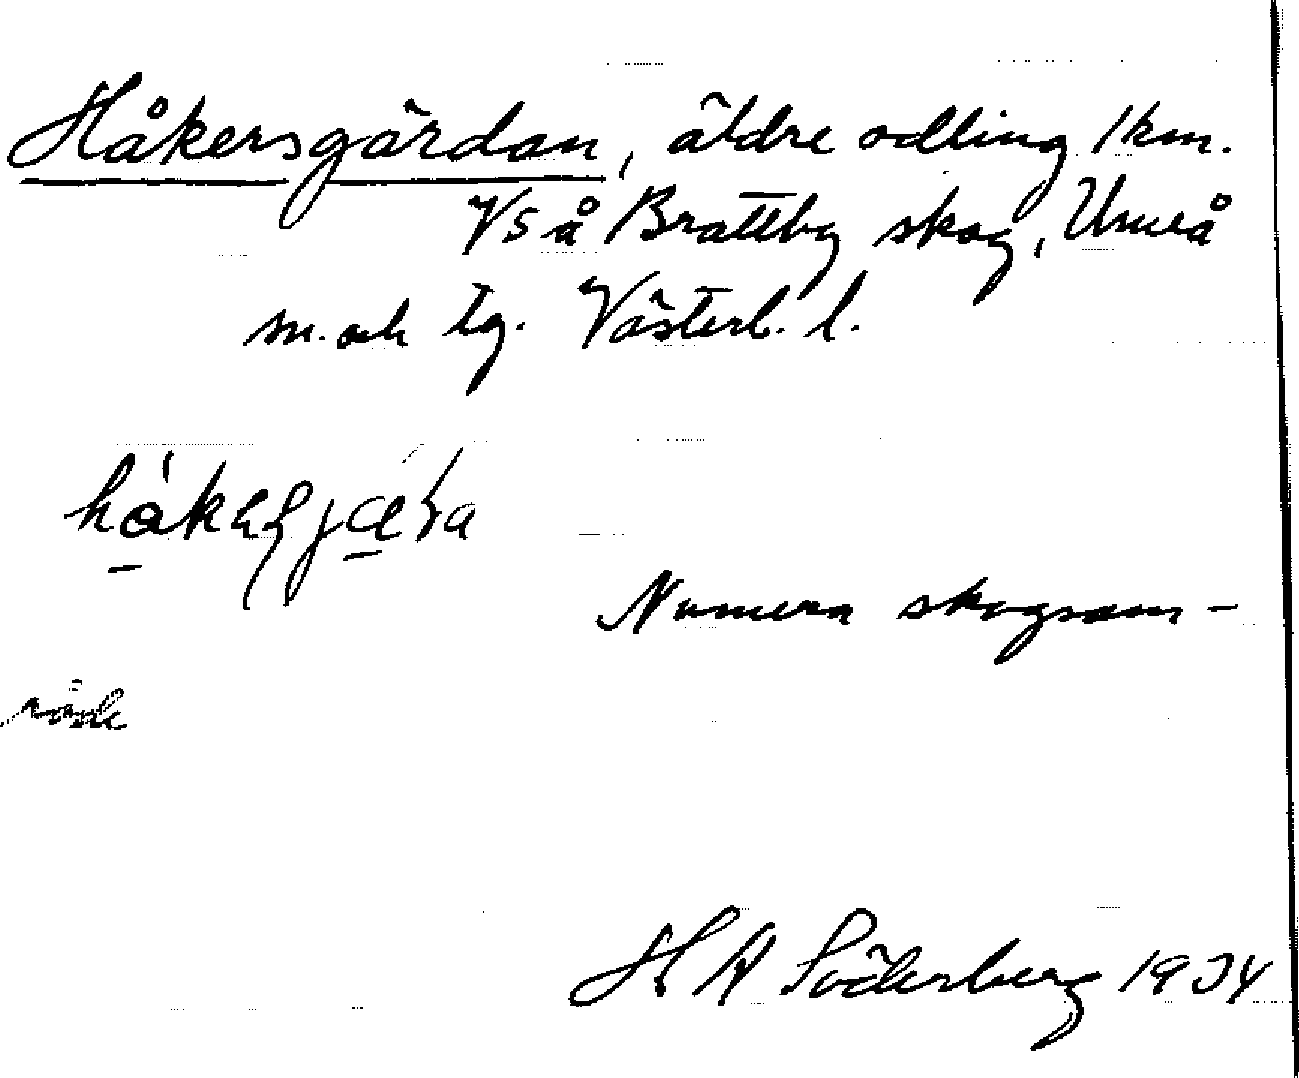 Håkersgärdan, äldre odling 1 km.
VSå Brattby skog, Umeå
m. och tg. Västerb. l.
Numera skogsom-
råde
H A Söderberg 1934